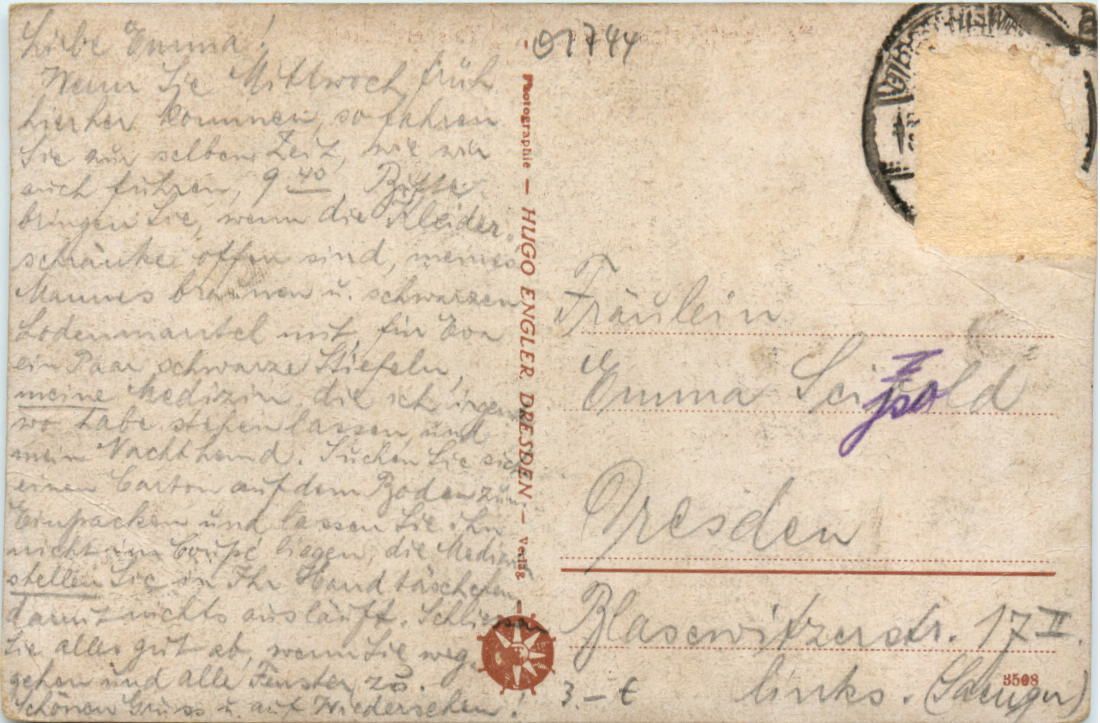 Liebe Emma!
Wenn Sie Mittwoch früh
hierher kommen, so fahren
Sie zur selben Zeit, wie wir
auch fuhren, 9 40. Bitte
bringen Sie, wenn die Kleider-
schränke offen sind, meines
Mannes braunen u. schwarzen
Lodenmantel mit, für Eva
ein Paar schwarze Stiefeln,
meine Medizin, die ich irgend
wo habe stehen lassen, und
mein Nachthemd. Suchen Sie sich
einen Carton auf dem Boden zum
Einpacken und lassen Sie ihn
nicht im Coupé liegen, die Medizin
stellen Sie in Ihr Handtäschchen,
damit nichts ausläuft. Schliessen
Sie alles gut ab, wenn Sie weg-
gehen und alle Fenster zu.
Schönen Gruss u. auf Wiedersehen!
01744
Photographie — HUGO ENGLER DRESDEN — Verlag
Fräulein
Emma
Dresden
Blasewitzerstr. 17 II.
links.
3508
3.- €